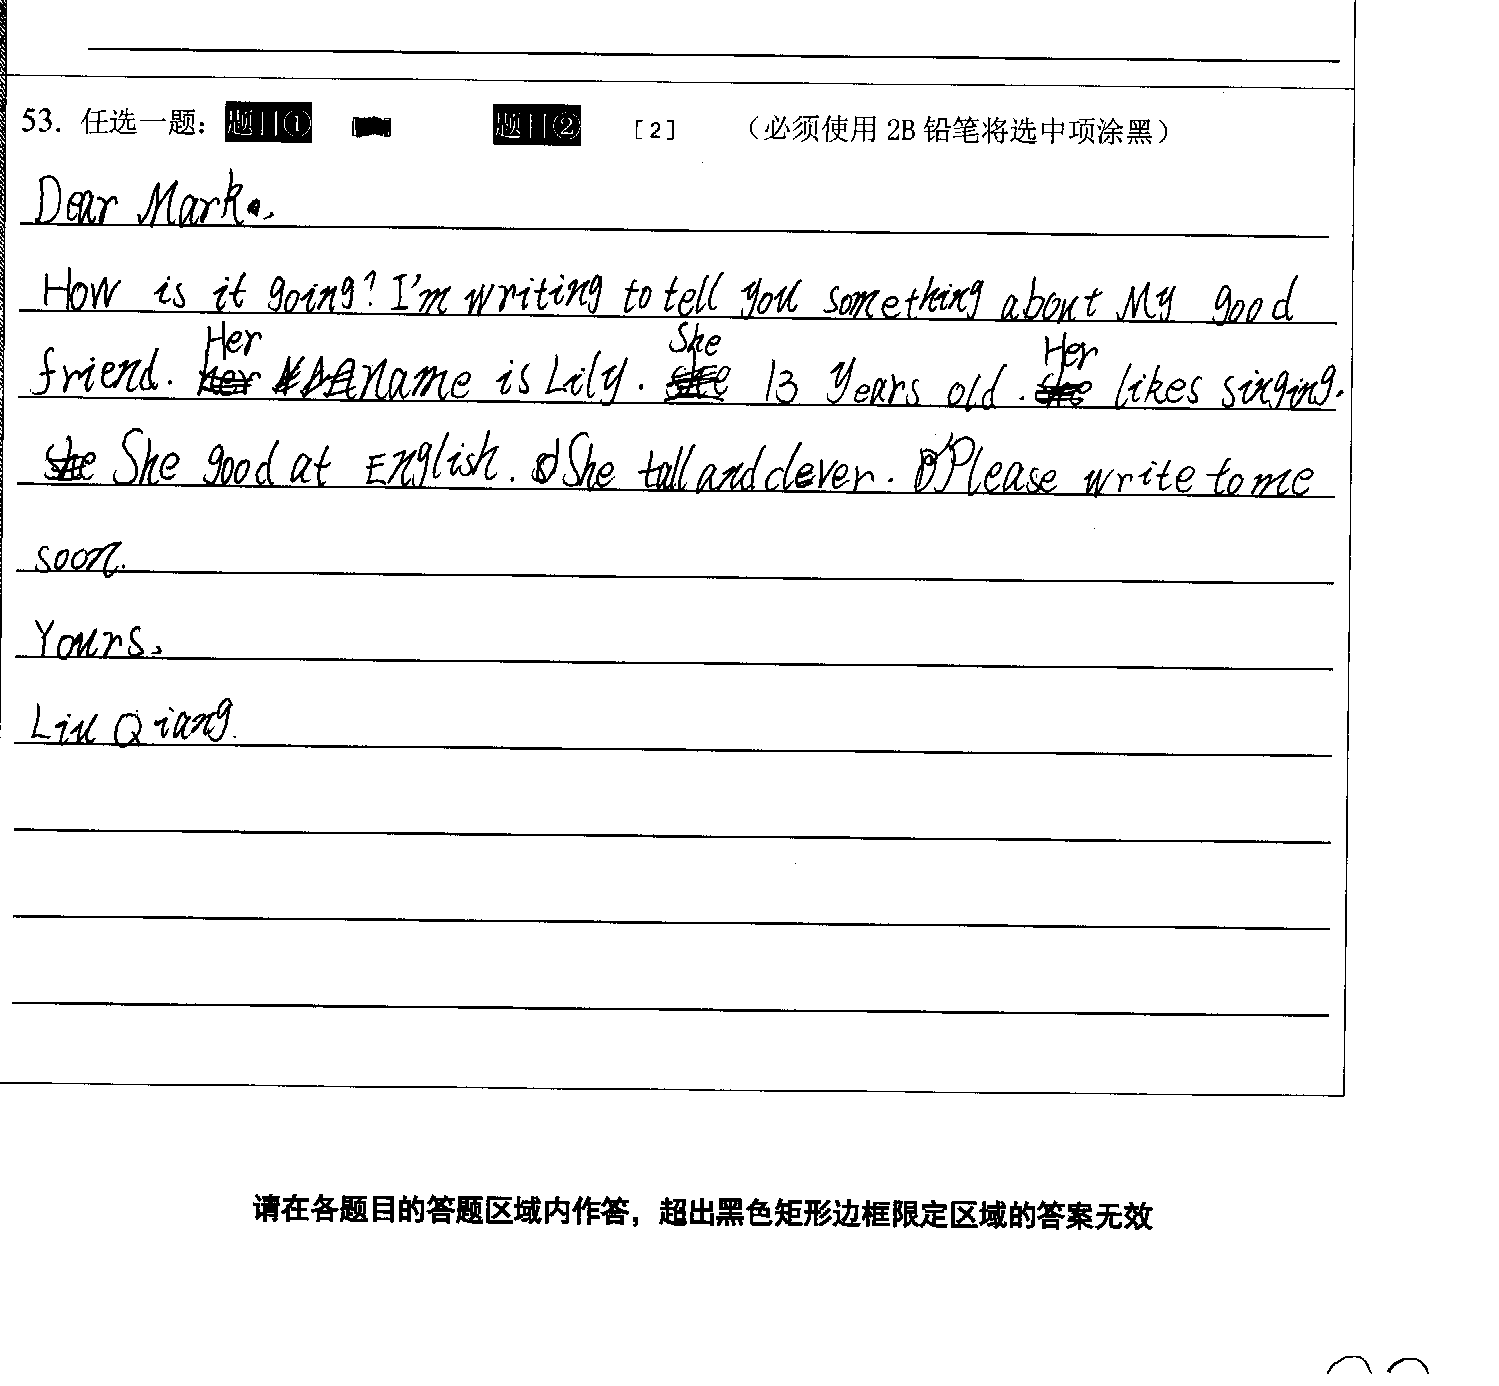 53. 任选一题： 题目① 题目② [2] （必须使用 2B 铅笔将选中项涂黑）
Dear Mark.,
How is it going? I'm writing to tell you something about My good
friend. Her name is Lily. She 13 years old. Her likes singing.
She good at English. She tall and clever. Please write to me
soon.
Yours,
Liu Qiang.
请在各题目的答题区域内作答，超出黑色矩形边框限定区域的答案无效